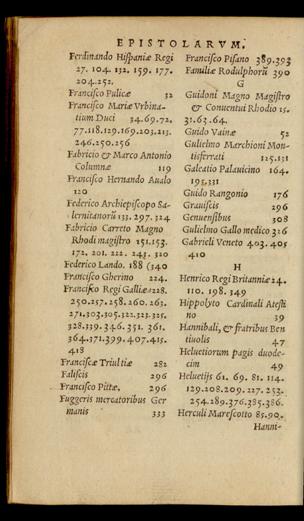 EPISTOLARVM.
Ferdinando Hispaniæ Regi
27. 104. 132. 159. 177.
204. 252.
Francisco Pulicæ 32
Francisco Mariæ Vrbina-
tium Duci 34. 69. 72.
77. 118. 129. 169. 203. 213.
246. 250. 256
Fabricio & Marco Antonio
Columnæ 119
Francisco Hernando Aualo
120
Federico Archiepiscopo Sa-
lernitanorũ 133. 297. 324
Fabricio Carreto Magno
Rhodi magistro 151. 153.
172. 201. 222. 243. 320
Federico Lando. 188 (340
Francisco Gherino 224.
Francisco Regi Galliæ 228.
250. 257. 258. 260. 263.
271. 303. 305. 322. 323. 325.
328. 339. 346. 351. 361.
364. 371. 399. 407. 415.
418
Franciscæ Triultiæ 282
Faliscis 296
Francisco Pittæ. 296
Fuggeris mercatoribus Ger
manis 333
Francisco Pisano 389. 393
Familiæ Rodulphorũ 390
G
Guidoni Magno Magistro
& Conuentui Rhodio 15.
31. 63. 64.
Guido Vainæ 52
Gulielmo Marchioni Mon-
tisferrati 125. 131
Galeatio Palauicino 164.
193. 331
Guido Rangonio 176
Grauiscis 296
Genuensibus 308
Gulielmo Gallo medico 316
Gabrieli Veneto 403. 405
410
H
Henrico Regi Britanniæ 24.
110. 198. 349
Hippolyto Cardinali Atesti
no 39
Hannibali, & fratribus Ben
tiuolis 47
Heluetiorum pagis duode-
cim 49
Heluetijs 61. 69. 81. 114.
129. 208. 209. 227. 253.
254. 289. 376. 385. 386.
Herculi Marescotto 85. 90.
Hanni-